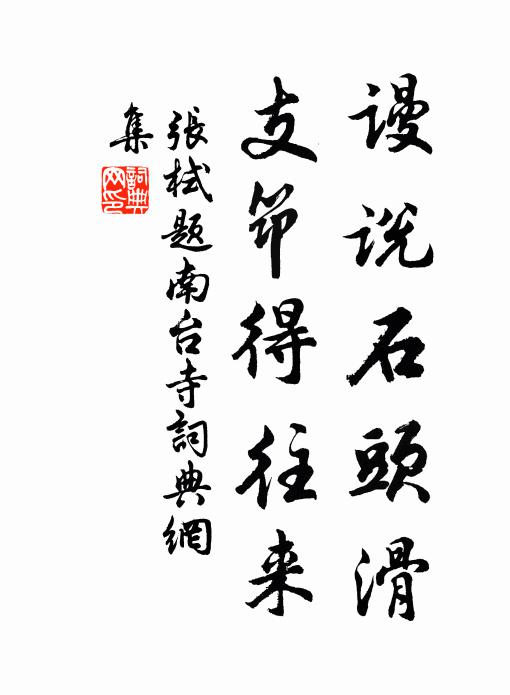 谩说石頭滑
支筇得往来
張栻题南台寺詞典網
集
詞典网印